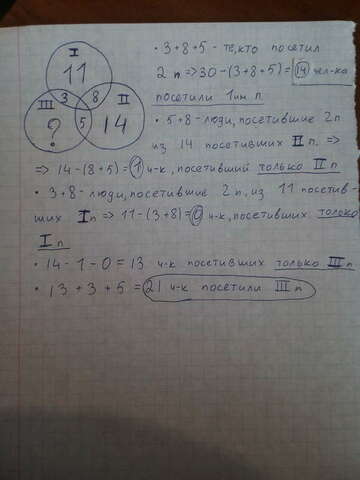 I
11
III
3
8
II
?
5
14
• 3+8+5 - те, кто посетил
2 п => 30-(3+8+5)=14 чел-ка
посетили 1им п.
• 5+8 - люди, посетившие 2п
из 14 посетивших II п. =>
=> 14-(8+5)=1 ч-к, посетивший только II п
• 3+8 - люди, посетившие 2 п, из 11 посетив-
ших I п => 11-(3+8)=0 ч-к, посетивших только
I п
• 14-1-0=13 ч-к посетивших только III п
• 13+3+5=21 ч-к посетили III п